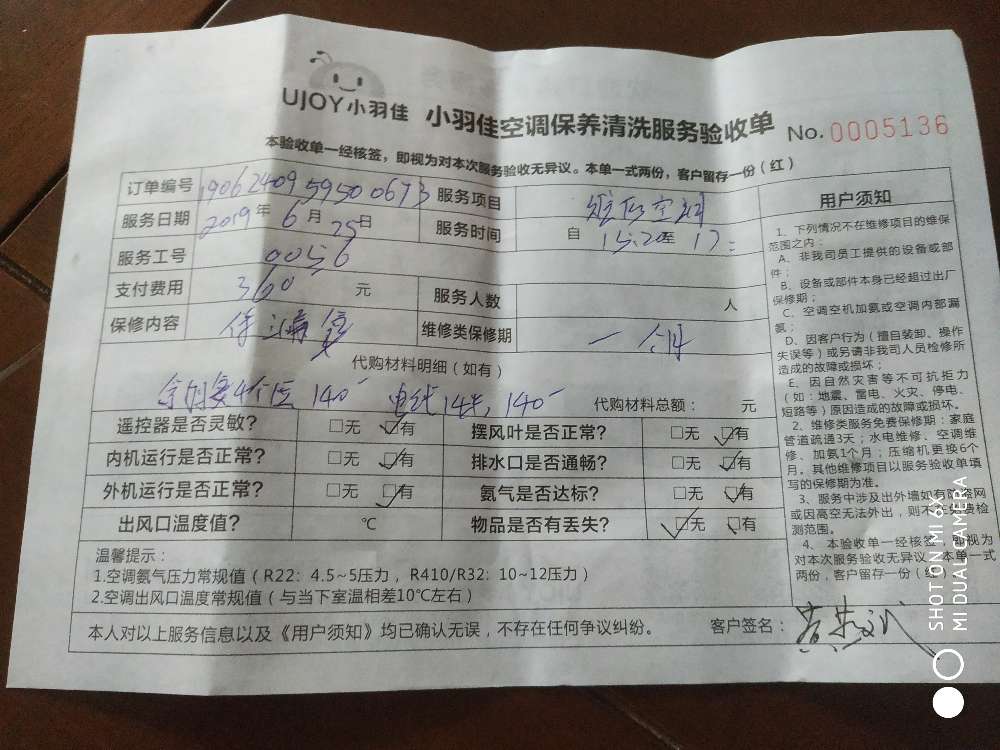 UJOY小羽佳 小羽佳空调保养清洗服务验收单 No. 0005136
本验收单一经核签，即视为对本次服务验收无异议。本单一式两份，客户留存一份（红）
订单编号 1906240959500673 服务项目 维修空调
服务日期 2019年 6月 25日 服务时间 自 15:20至 17:
服务工号 0056
支付费用 360 元 服务人数 人
保修内容 维修类保修期 一个月
代购材料明细（如有）
140 电线14米, 140 代购材料总额： 元
遥控器是否灵敏？ □无 □有 摆风叶是否正常？ □无 □有
内机运行是否正常？ □无 □有 排水口是否通畅？ □无 □有
外机运行是否正常？ □无 □有 氨气是否达标？ □无 □有
出风口温度值？ ℃ 物品是否有丢失？ □无 □有
温馨提示：
1.空调氨气压力常规值（R22：4.5~5压力，R410/R32：10~12压力）
2.空调出风口温度常规值（与当下室温相差10℃左右）
本人对以上服务信息以及《用户须知》均已确认无误，不存在任何争议纠纷。 客户签名：
用户须知
1、下列情况不在维修项目的维保
范围之内：
A、非我司员工提供的设备或部
件；
B、设备或部件本身已经超过出厂
保修期；
C、空调空机加氨或空调内部漏
氨；
D、因客户行为（擅自装卸、操作
失误等）或另请非我司人员检修所
造成的故障或损坏；
E、因自然灾害等不可抗拒力
（如：地震、雷电、火灾、停电、
短路等）原因造成的故障或损坏。
2、维修类服务免费保修期：家庭
管道疏通3天；水电维修、空调维
修、加氨1个月；压缩机更换6个
月。其他维修项目以服务验收单填
写的保修期为准。
3、服务中涉及出外墙如有防盗网
或因高空无法外出，则不在免费检
测范围。
4、本验收单一经核签，即视为
对本次服务验收无异议。本单一式
两份，客户留存一份（红）
SHOT ON MI 6X
MI DUAL CAMERA